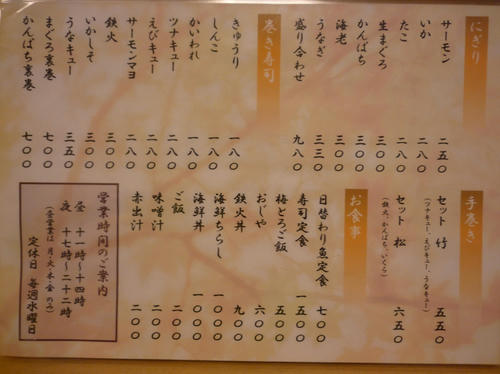 にぎり
サーモン 二五〇
いか 二八〇
たこ 二八〇
生まぐろ 三〇〇
かんぱち 三〇〇
海老 三〇〇
うなぎ 三三〇
盛り合わせ 九八〇
巻き寿司
きゅうり 一八〇
しんこ 一八〇
かいわれ 一八〇
ツナキュー 二八〇
えびキュー 二八〇
サーモンマヨ 二八〇
鉄火 三〇〇
いかしそ 三〇〇
うなキュー 三五〇
まぐろ裏巻 七〇〇
かんぱち裏巻 七〇〇
手巻き
セット 竹 五五〇
(ツナキュー、えびキュー、うなキュー)
セット 松 六五〇
(鉄火、かんぱち、いくら)
お食事
日替わり魚定食 七〇〇
寿司定食 一五〇〇
梅とろご飯 五〇〇
おじや 六〇〇
鉄火丼 九〇〇
海鮮ちらし 一〇〇〇
海鮮丼 一〇〇〇
ご飯 二〇〇
味噌汁 二〇〇
赤出汁 二〇〇
営業時間のご案内
昼 十一時〜十四時
夜 十七時〜二十二時
(昼営業は月・火・木・金のみ)
定休日 毎週水曜日